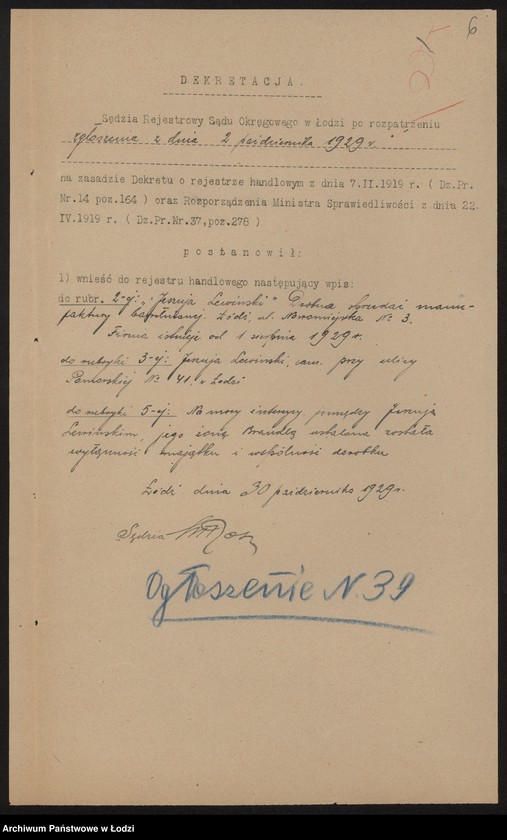 6
DEKRETACJA.
Sędzia Rejestrowy Sądu Okręgowego w Łodzi po rozpatrzeniu
zgłoszenia z dnia 2 października 1929 r.
na zasadzie Dekretu o rejestrze handlowym z dnia 7.II.1919 r. ( Dz.Pr.
Nr.14 poz.164 ) oraz Rozporządzenia Ministra Sprawiedliwości z dnia 22.
IV.1919 r. ( Dz.Pr.Nr.37,poz.278 )
postanowił:
1) wnieść do rejestru handlowego następujący wpis:
do rubr. 2-ej: „ Jezuja Lewiński" Drobna sprzedaż manu-
faktury bawełnianej. Łódź, ul. Nowomiejska № 3.
Firma istnieje od 1 sierpnia 1929 r.
do rubryki 3-ej: Jezuja Lewiński, zam. przy ulicy
Pomorskiej № 41. w Łodzi
do rubryki 5-ej: Na mocy intercyzy pomiędzy Jezują
Lewińskim, jego żoną Brandlą ustalona została
wyłączność majątku i wspólność dorobku
Łódź dnia 30 października 1929 r.
Sędzia
Ogłoszenie N. 39
Archiwum Państwowe w Łodzi